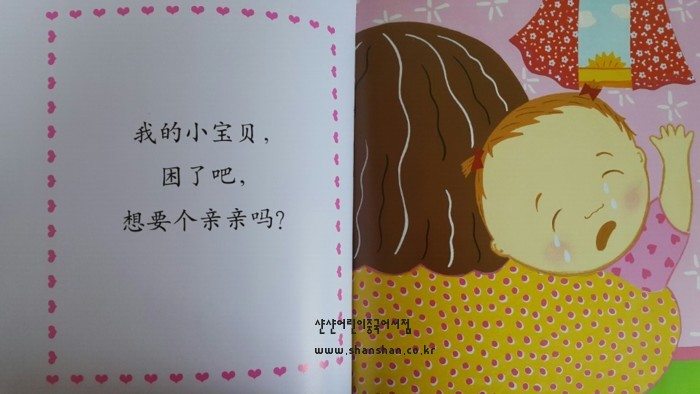 我的小宝贝，
困了吧，
想要个亲亲吗？
샨샨어린이중국어서점
www.shanshan.co.kr